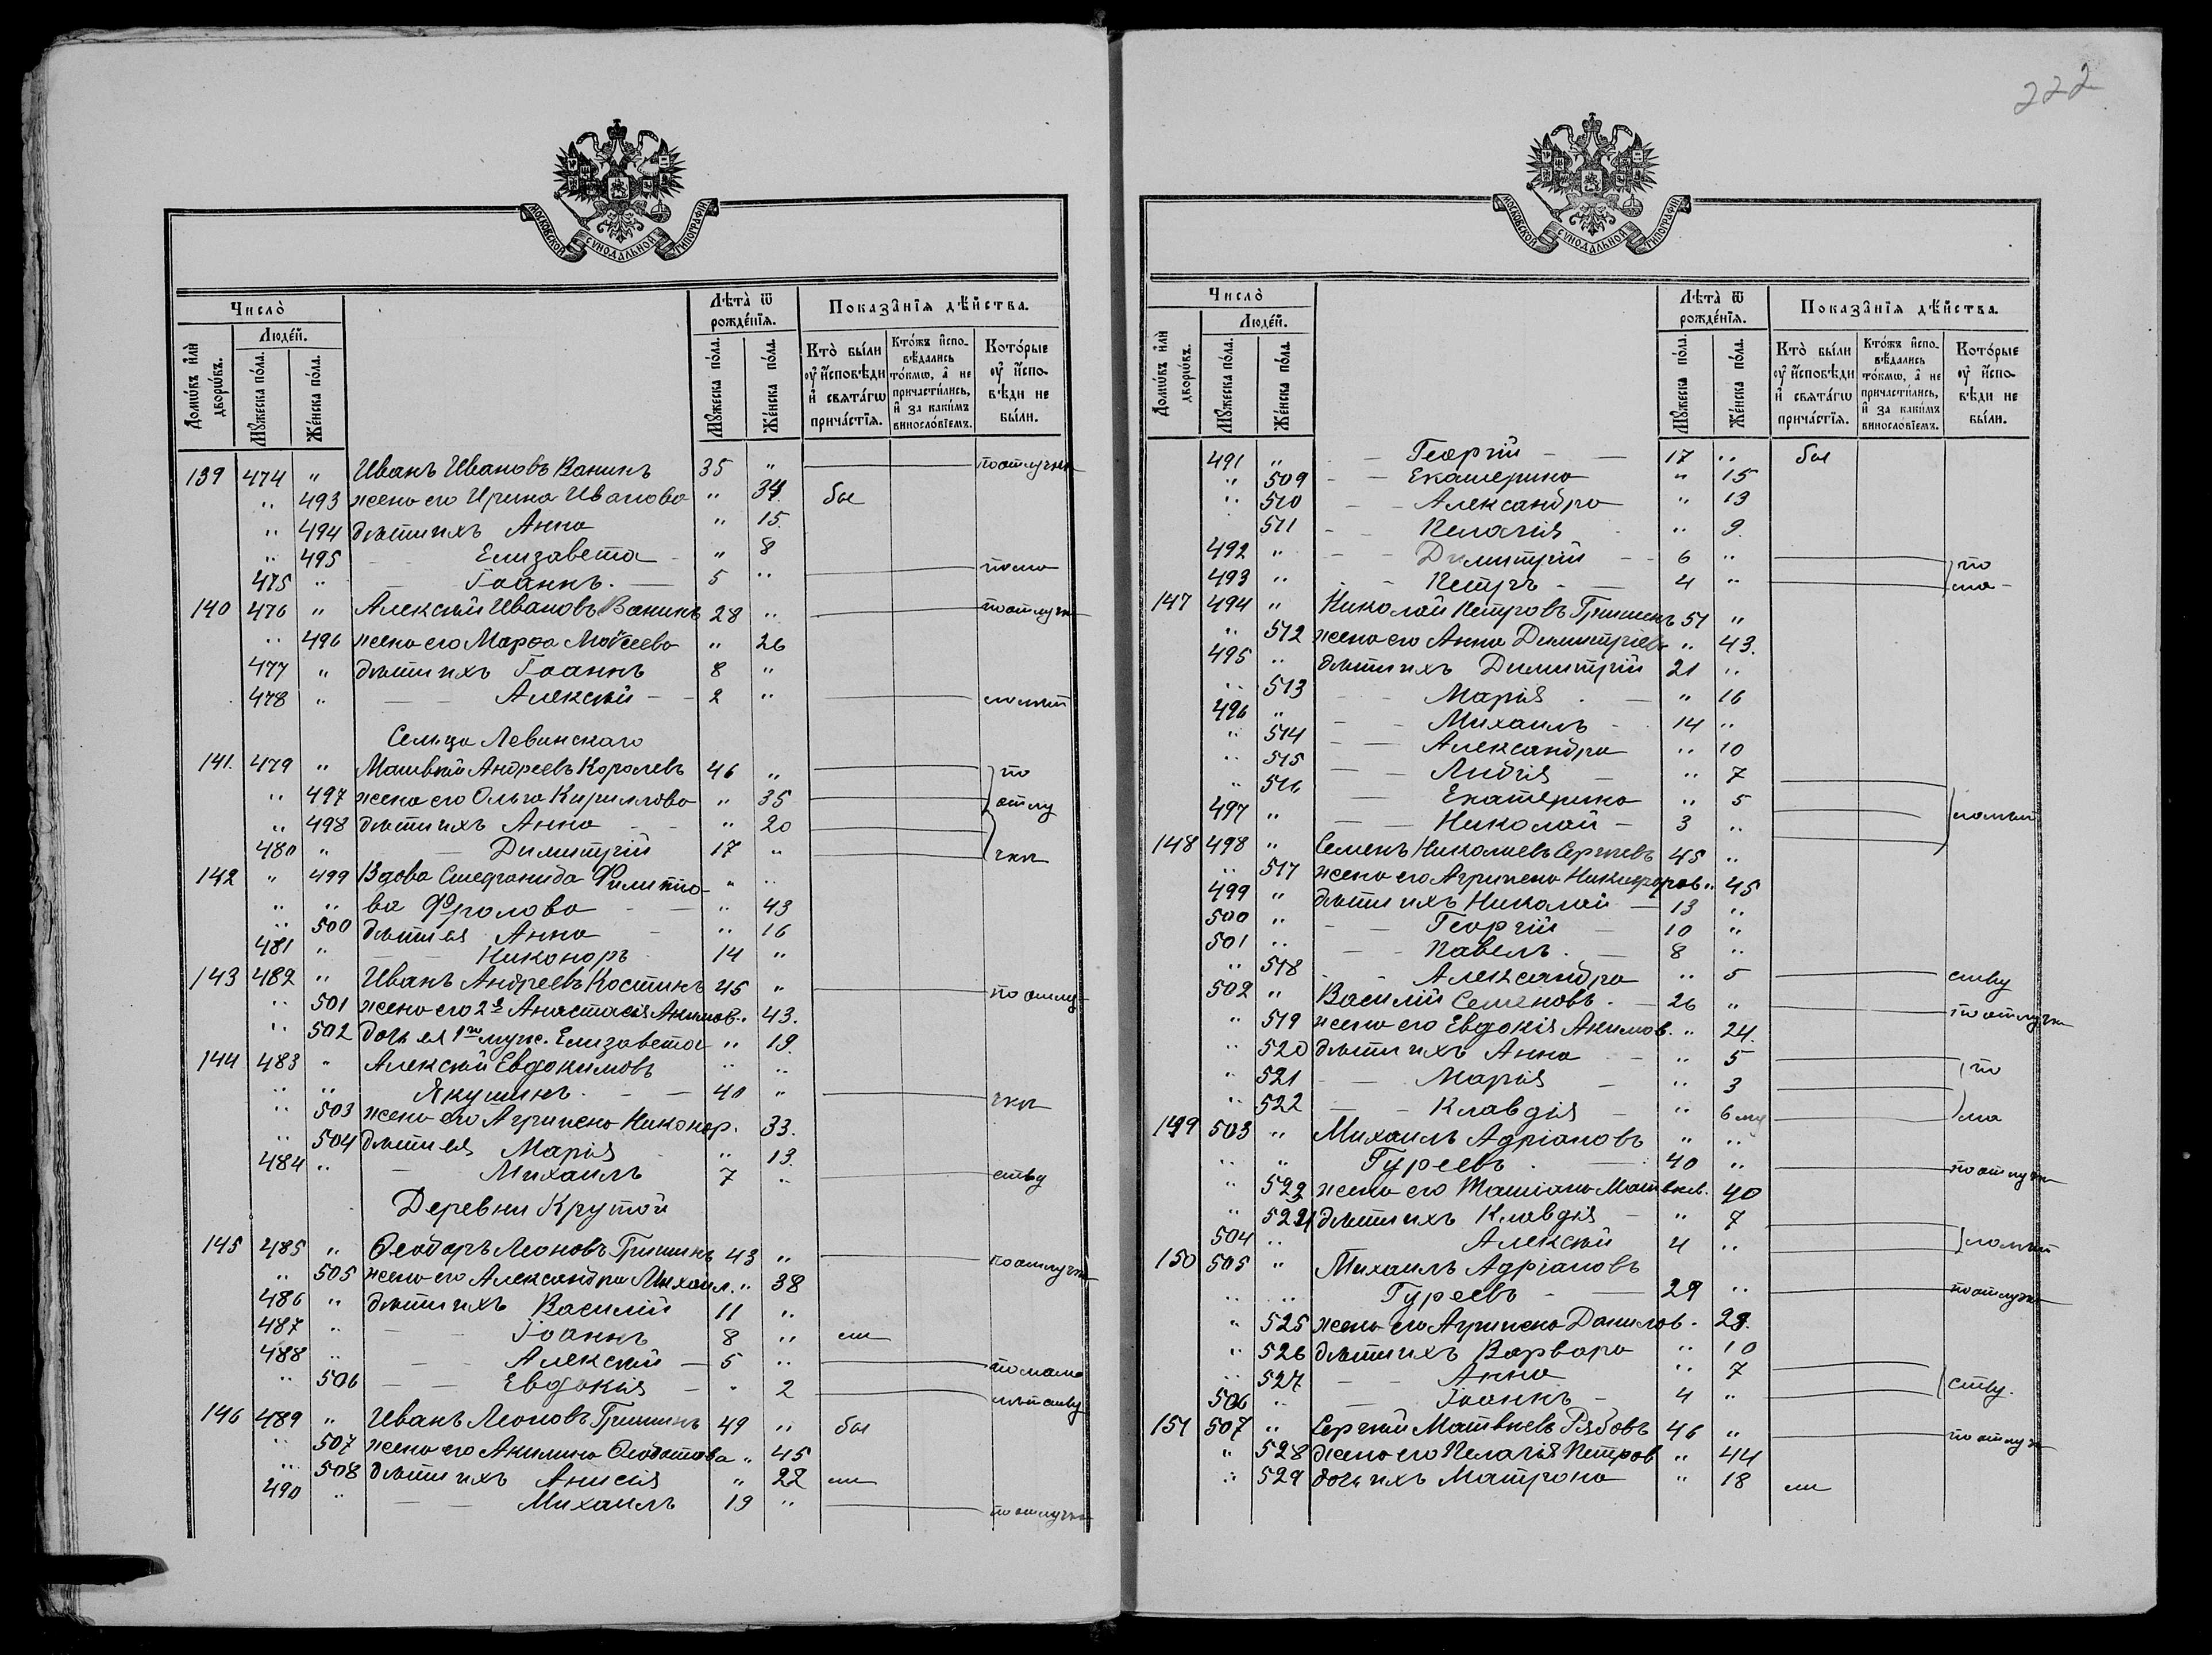 222
МОСКОВСКОЙ СУНОДАЛЬНОЙ ТИПОГРАФІИ
Число̀
Домѡ́въ и҆лѝ дворѡ́въ.
Люде́й.
Мꙋ́жеска по́ла.
Же́нска по́ла.
Лѣ́та ѿ рожде́нїѧ.
Мꙋ́жеска по́ла.
Же́нска по́ла.
Показа̑нїѧ дѣ́йства.
Кто̀ бы́ли ᲂу҆ и҆сповѣ́ди и҆ свѧта́гѡ прича́стїѧ.
Кто́жъ и҆сповѣ́дались то́кмѡ, а҆ не причасти́лись, и҆ за каки́мъ виносло́вїемъ.
Кото́рые ᲂу҆ и҆сповѣ́ди не бы́ли.
139 474 " Иванъ Ивановъ Ванинъ 35 " по отлучкѣ
" 493 жена его Ирина Иванова " 34 бы
" 494 дѣти ихъ Анна " 15.
" 495 Елизавета " 8
475 " Іоаннъ. 5 " по ма
140 476 " Алексѣй Ивановъ Ванинъ 28 " по отлучк
" 496 жена его Марѳа Моѵсеева " 26
477 " дѣти ихъ Іоаннъ 8 "
478 " Алексѣй 2 " лолѣт
Сельца Левинскаго
141. 479 " Матвѣй Андреевъ Королевъ 46 " по
" 497 жена его Ольга Кириллова " 35 отлу
" 498 дѣти ихъ Анна " 20
480 " Димитрій 17 " чкѣ
142 " 499 Вдова Стефанида Филиппо- " "
" " ва Фролова " 43
" 500 дѣти ея Анна " 16
481 " Никоноръ 14 "
143 482 " Иванъ Андреевъ Костинъ 45 " по отлу-
" 501 жена его 2я Анастасія Акимов. " 43.
" 502 дочь ея 1го муж. Елизавета " 19.
144 483 " Алексѣй Евдокимовъ " "
" " Якушинъ. 40 " чкѣ
" 503 жена его Агрипена Никонор. 33.
" 504 дѣти ея Марія " 13.
484 " Михаилъ 7 " ству
Деревни Крутой
145 485 " Ѳеодоръ Леоновъ Гришинъ 43 " по отлучкѣ
" 505 жена его Александра Михаил. " 38
486 " дѣти ихъ Василій 11 "
487 " Іоаннъ 8 " ли
488 " Алексѣй 5 " по мало
" 506 Евдокія " 2 лѣтству
146 489 " Иванъ Леоновъ Гришинъ 49 " бы
" 507 жена его Акилина Ѳеоктистова " 45
" 508 дѣти ихъ Анисія " 22 ли
490 " Михаилъ 19 " по отлучкѣ
МОСКОВСКОЙ СУНОДАЛЬНОЙ ТИПОГРАФІИ
Число̀
Домѡ́въ и҆лѝ дворѡ́въ.
Люде́й.
Мꙋ́жеска по́ла.
Же́нска по́ла.
Лѣ́та ѿ рожде́нїѧ.
Мꙋ́жеска по́ла.
Же́нска по́ла.
Показа̑нїѧ дѣ́йства.
Кто̀ бы́ли ᲂу҆ и҆сповѣ́ди и҆ свѧта́гѡ прича́стїѧ.
Кто́жъ и҆сповѣ́дались то́кмѡ, а҆ не причасти́лись, и҆ за каки́мъ виносло́вїемъ.
Кото́рые ᲂу҆ и҆сповѣ́ди не бы́ли.
491 " Георгій 17 " бы
" 509 Екатерина " 15
" 510 Александра " 13
511 Пелагія " 9.
492 " Димитрій 6 " по
493 " Петръ 4 " ма-
147 494 " Николай Петровъ Гришинъ 51 "
" 512 жена его Анна Димитріев " 43.
495 " дѣти ихъ Димитрій 21 "
" 513 Марія " 16
496 " Михаилъ 14 "
" 514 Александра " 10
" 515 Лидія " 7
" 516 Екатерина " 5
497 " Николай 3 " лолѣт
148 498 " Семенъ Николаевъ Сергѣевъ 45 "
" 517 жена его Агрипена Никифоров. " 45
499 " дѣти ихъ Николай 13 "
500 " Георгій 10 "
501 " Павелъ. 8 "
" 518 Александра " 5 ству
502 " Василій Семеновъ. 26 " по отлучкѣ
" 519 жена его Евдокія Акимов. " 24.
" 520 дѣти ихъ Анна " 5 по
" 521 Марія " 3
" 522 Клавдія " 6 мц ма
149 503 " Михаилъ Адріановъ " "
" " Гуреевъ. 40 " по отлучкѣ
" 523 жена его Татіана Матвѣев. 40
" 524 дѣти ихъ Клавдія " 7
504 " Алексѣй 4 " лолѣт
150 505 " Михаилъ Адріановъ
" " Гуреевъ 29 " по отлучкѣ
" 525 жена его Агрипена Данилов. 28.
" 526 дѣти ихъ Варвара " 10
" 527 Анна " 7
506 " Іоаннъ 4 " ству.
151 507 " Сергѣй Матвѣевъ Рябовъ 46 " по отлучк
" 528 жена его Пелагія Петров " 44
" 529 дочь ихъ Матрона " 18 ли